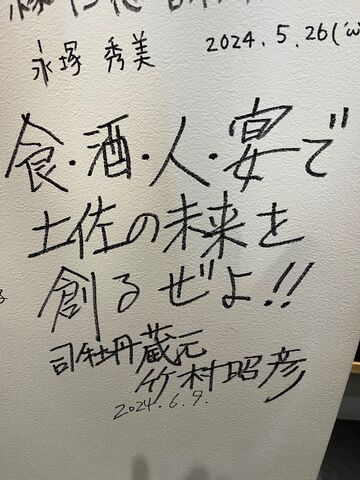 永塚 秀美
2024.5.26('ω
食・酒・人・宴で
土佐の未来を
創るぜよ!!
司牡丹 蔵元
竹村昭彦
2024.6.9.